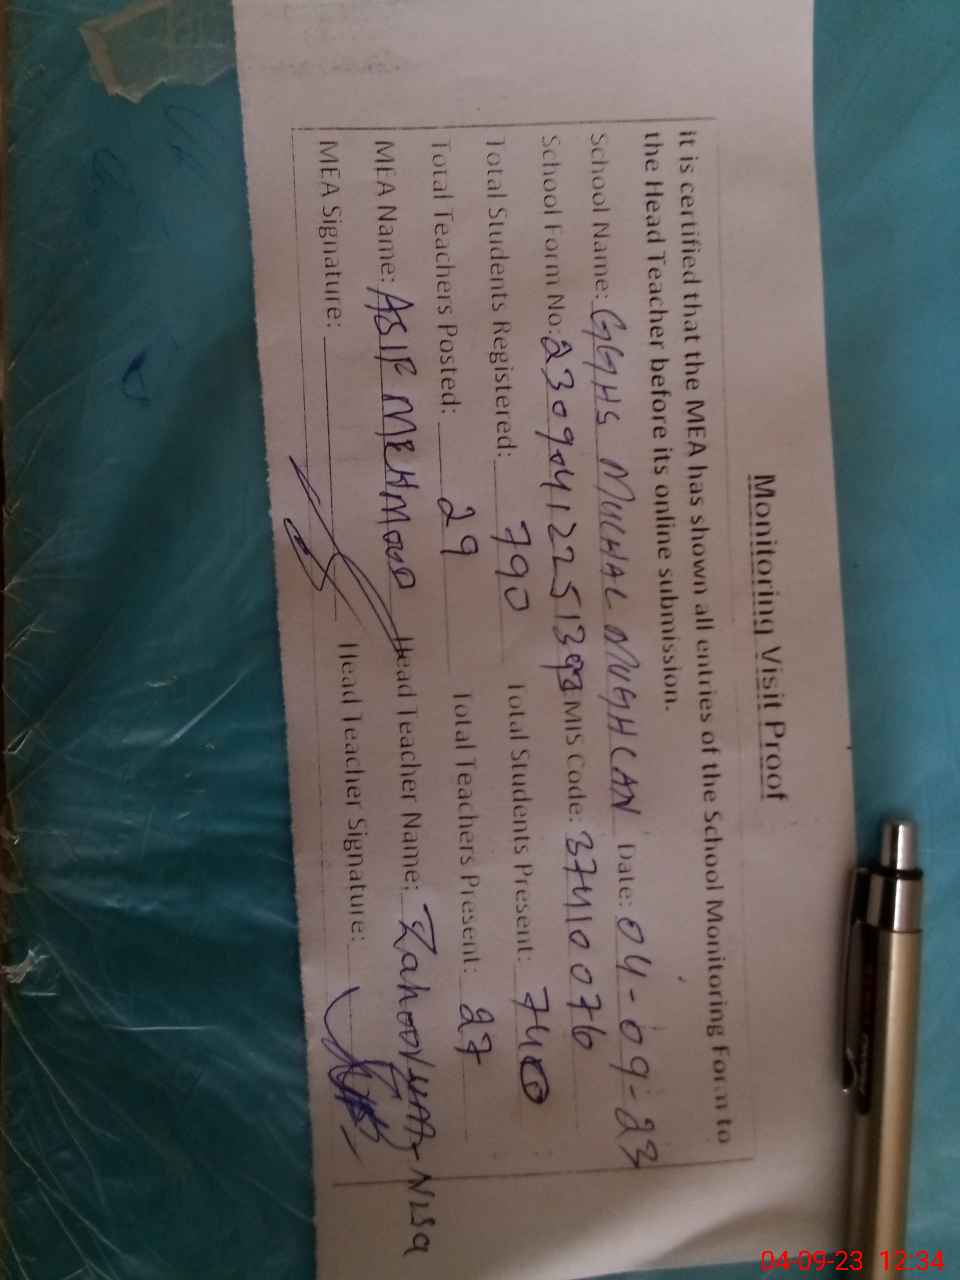 Monitoring Visit Proof
it is certified that the MEA has shown all entries of the School Monitoring Form to
the Head Teacher before its online submission.
School Name: GGHS MUGHAL MUGHLAN Date: 04-09-23
School Form No: MIS Code: 37410076
Total Students Registered: 790 Total Students Present: 740
Total Teachers Posted: 29 Total Teachers Present: 27
MEA Name: ASIF MEHMOOD Head Teacher Name: Zahoor-Nisa
MEA Signature: Head Teacher Signature:
04-09-23 12:34